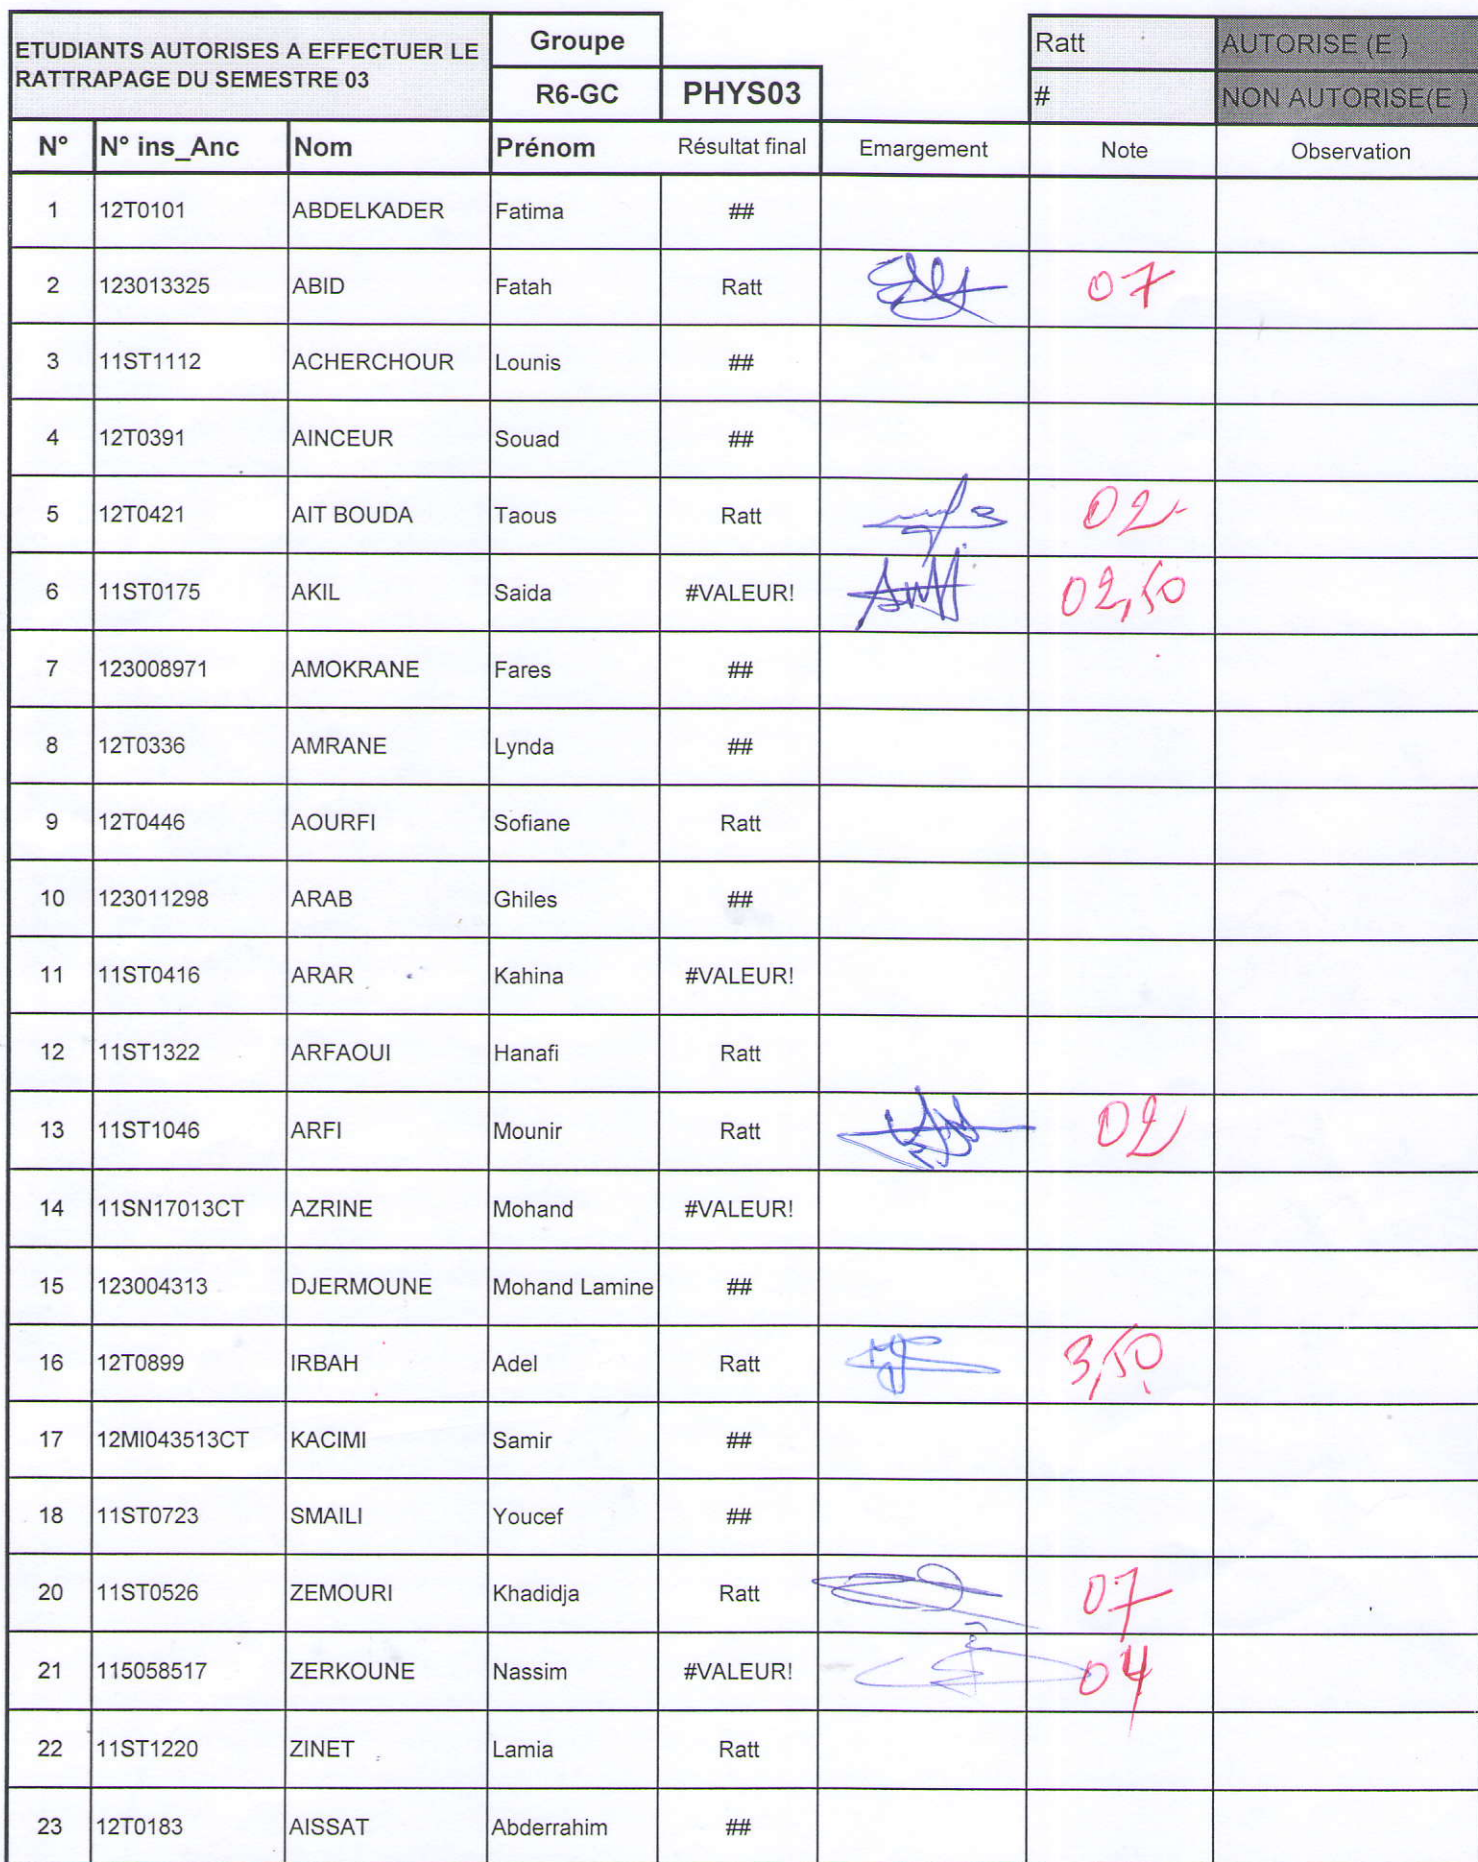 ETUDIANTS AUTORISES A EFFECTUER LE
RATTRAPAGE DU SEMESTRE 03
Groupe
R6-GC PHYS03
Ratt AUTORISE (E )
# NON AUTORISE(E )
N° N° ins_Anc Nom Prénom Résultat final Emargement Note Observation
1 12T0101 ABDELKADER Fatima ##
2 123013325 ABID Fatah Ratt 07
3 11ST1112 ACHERCHOUR Lounis ##
4 12T0391 AINCEUR Souad ##
5 12T0421 AIT BOUDA Taous Ratt 02
6 11ST0175 AKIL Saida #VALEUR! 02,50
7 123008971 AMOKRANE Fares ##
8 12T0336 AMRANE Lynda ##
9 12T0446 AOURFI Sofiane Ratt
10 123011298 ARAB Ghiles ##
11 11ST0416 ARAR Kahina #VALEUR!
12 11ST1322 ARFAOUI Hanafi Ratt
13 11ST1046 ARFI Mounir Ratt 02
14 11SN17013CT AZRINE Mohand #VALEUR!
15 123004313 DJERMOUNE Mohand Lamine ##
16 12T0899 IRBAH Adel Ratt 3,50
17 12MI043513CT KACIMI Samir ##
18 11ST0723 SMAILI Youcef ##
20 11ST0526 ZEMOURI Khadidja Ratt 07
21 115058517 ZERKOUNE Nassim #VALEUR! 04
22 11ST1220 ZINET Lamia Ratt
23 12T0183 AISSAT Abderrahim ##